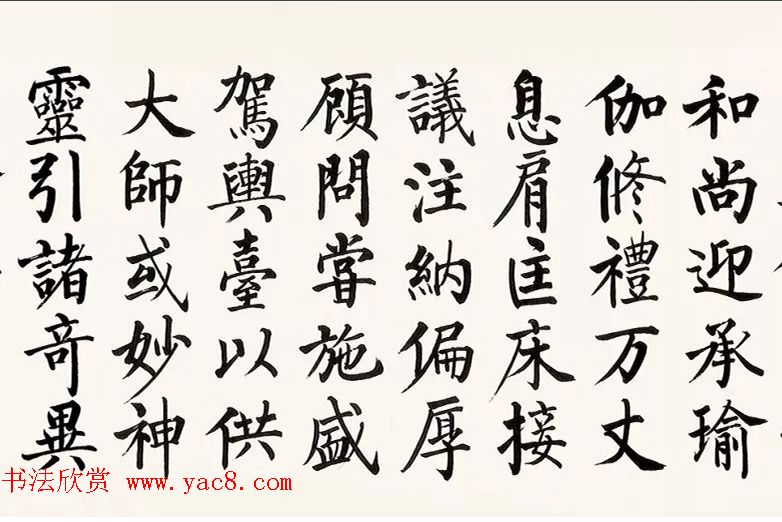 和尚迎承瑜
伽修禮万丈
息肩匡床接
議注納偏厚
顧問嘗施盛
駕輿臺以供
大師或妙神
靈引諸奇異
书法欣赏 www.yac8.com